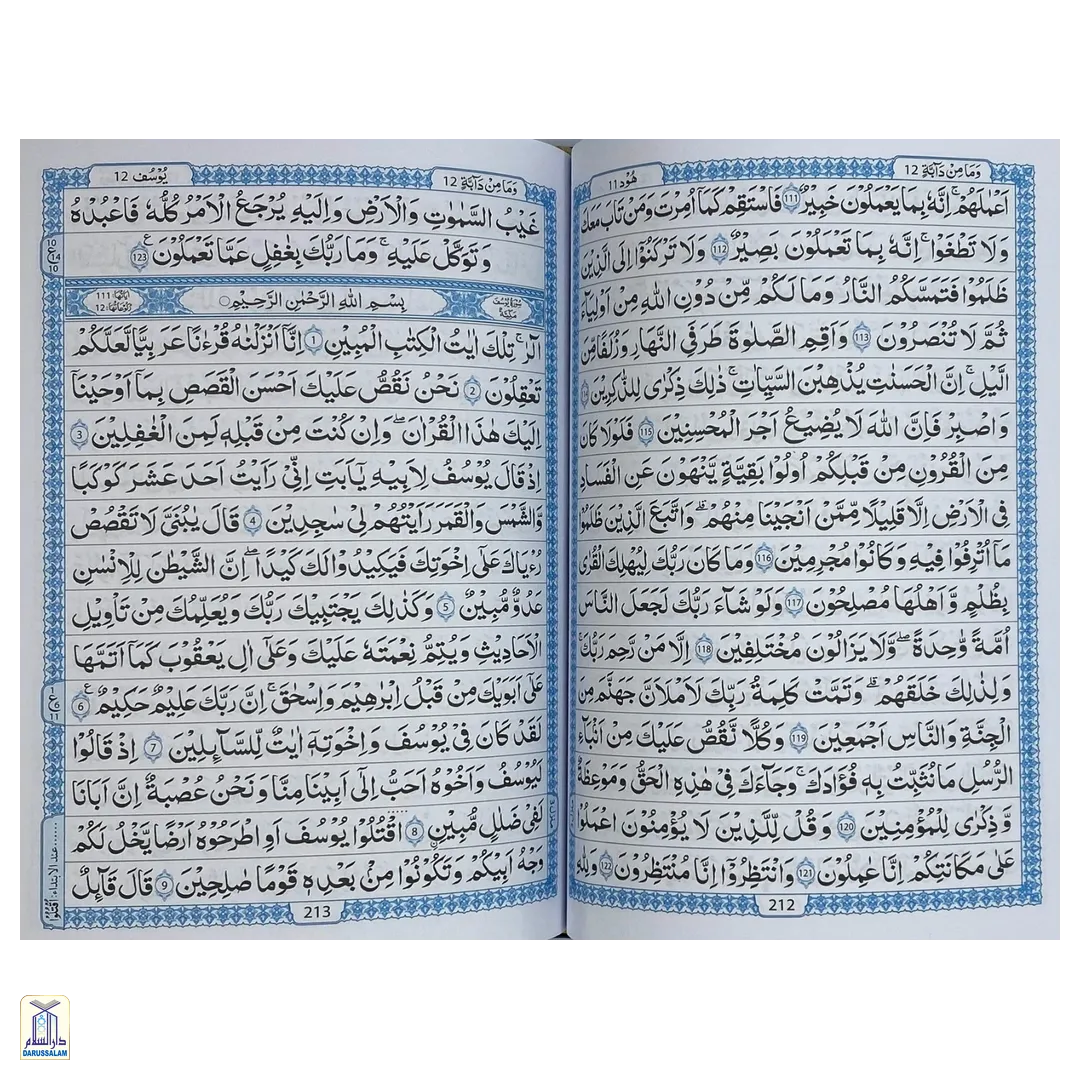 وَمَا مِنْ دَآبَّةٍ 12
هُوْد 11
اَعْمَالَهُمْ ۚ اِنَّهٗ بِمَا يَعْمَلُوْنَ خَبِيْرٌ 111 فَاسْتَقِمْ كَمَآ اُمِرْتَ وَمَنْ تَابَ مَعَكَ
وَلَا تَطْغَوْا ۚ اِنَّهٗ بِمَا تَعْمَلُوْنَ بَصِيْرٌ 112 وَلَا تَرْكَنُوْٓا اِلَى الَّذِيْنَ
ظَلَمُوْا فَتَمَسَّكُمُ النَّارُ وَمَا لَكُمْ مِّنْ دُوْنِ اللّٰهِ مِنْ اَوْلِيَآءَ
ثُمَّ لَا تُنْصَرُوْنَ 113 وَاَقِمِ الصَّلٰوةَ طَرَفَيِ النَّهَارِ وَزُلَفًا مِّنَ
الَّيْلِ ۚ اِنَّ الْحَسَنٰتِ يُذْهِبْنَ السَّيِّاٰتِ ۚ ذٰلِكَ ذِكْرٰى لِلذّٰكِرِيْنَ 114
وَاصْبِرْ فَاِنَّ اللّٰهَ لَا يُضِيْعُ اَجْرَ الْمُحْسِنِيْنَ 115 فَلَوْلَا كَانَ
مِنَ الْقُرُوْنِ مِنْ قَبْلِكُمْ اُولُوْا بَقِيَّةٍ يَّنْهَوْنَ عَنِ الْفَسَادِ
فِى الْاَرْضِ اِلَّا قَلِيْلًا مِّمَّنْ اَنْجَيْنَا مِنْهُمْ ۗ وَاتَّبَعَ الَّذِيْنَ ظَلَمُوْا
مَآ اُتْرِفُوْا فِيْهِ وَكَانُوْا مُجْرِمِيْنَ 116 وَمَا كَانَ رَبُّكَ لِيُهْلِكَ الْقُرٰى
بِظُلْمٍ وَّاَهْلُهَا مُصْلِحُوْنَ 117 وَلَوْ شَآءَ رَبُّكَ لَجَعَلَ النَّاسَ
اُمَّةً وَّاحِدَةً ۖ وَّلَا يَزَالُوْنَ مُخْتَلِفِيْنَ 118 اِلَّا مَنْ رَّحِمَ رَبُّكَ ۚ
وَلِذٰلِكَ خَلَقَهُمْ ۗ وَتَمَّتْ كَلِمَةُ رَبِّكَ لَاَمْلَاَنَّ جَهَنَّمَ مِنَ
الْجِنَّةِ وَالنَّاسِ اَجْمَعِيْنَ 119 وَكُلًّا نَّقُصُّ عَلَيْكَ مِنْ اَنْۢبَآءِ
الرُّسُلِ مَا نُثَبِّتُ بِهٖ فُؤَادَكَ ۚ وَجَآءَكَ فِىْ هٰذِهِ الْحَقُّ وَمَوْعِظَةٌ
وَّذِكْرٰى لِلْمُؤْمِنِيْنَ 120 وَقُلْ لِّلَّذِيْنَ لَا يُؤْمِنُوْنَ اعْمَلُوْا
عَلٰى مَكَانَتِكُمْ اِنَّا عٰمِلُوْنَ 121 وَانْتَظِرُوْٓا اِنَّا مُنْتَظِرُوْنَ 122 وَلِلّٰهِ
212
وَمَا مِنْ دَآبَّةٍ 12
يُوْسُف 12
غَيْبُ السَّمٰوٰتِ وَالْاَرْضِ وَاِلَيْهِ يُرْجَعُ الْاَمْرُ كُلُّهٗ فَاعْبُدْهُ
وَتَوَكَّلْ عَلَيْهِ ۚ وَمَا رَبُّكَ بِغٰفِلٍ عَمَّا تَعْمَلُوْنَ 123
10
ع 14
10
سُوْرَةُ يُوْسُفَ مَكِّيَّةٌ
بِسْمِ اللّٰهِ الرَّحْمٰنِ الرَّحِيْمِ
اٰيَاتُهَا: 111
رُكُوْعَاتُهَا: 12
الٓرٰ ۚ تِلْكَ اٰيٰتُ الْكِتٰبِ الْمُبِيْنِ 1 اِنَّآ اَنْزَلْنٰهُ قُرْءٰنًا عَرَبِيًّا لَّعَلَّكُمْ
تَعْقِلُوْنَ 2 نَحْنُ نَقُصُّ عَلَيْكَ اَحْسَنَ الْقَصَصِ بِمَآ اَوْحَيْنَآ
اِلَيْكَ هٰذَا الْقُرْاٰنَ ۖ وَاِنْ كُنْتَ مِنْ قَبْلِهٖ لَمِنَ الْغٰفِلِيْنَ 3
اِذْ قَالَ يُوْسُفُ لِاَبِيْهِ يٰٓاَبَتِ اِنِّىْ رَاَيْتُ اَحَدَ عَشَرَ كَوْكَبًا
وَّالشَّمْسَ وَالْقَمَرَ رَاَيْتُهُمْ لِىْ سٰجِدِيْنَ 4 قَالَ يٰبُنَىَّ لَا تَقْصُصْ
رُءْيَاكَ عَلٰٓى اِخْوَتِكَ فَيَكِيْدُوْا لَكَ كَيْدًا ۖ اِنَّ الشَّيْطٰنَ لِلْاِنْسٰنِ
عَدُوٌّ مُّبِيْنٌ 5 وَكَذٰلِكَ يَجْتَبِيْكَ رَبُّكَ وَيُعَلِّمُكَ مِنْ تَاْوِيْلِ
الْاَحَادِيْثِ وَيُتِمُّ نِعْمَتَهٗ عَلَيْكَ وَعَلٰٓى اٰلِ يَعْقُوْبَ كَمَآ اَتَمَّهَا
عَلٰٓى اَبَوَيْكَ مِنْ قَبْلُ اِبْرٰهِيْمَ وَاِسْحٰقَ ۚ اِنَّ رَبَّكَ عَلِيْمٌ حَكِيْمٌ 6
1
ع 6
11
لَقَدْ كَانَ فِىْ يُوْسُفَ وَاِخْوَتِهٖٓ اٰيٰتٌ لِّلسَّآئِلِيْنَ 7 اِذْ قَالُوْا
لَيُوْسُفُ وَاَخُوْهُ اَحَبُّ اِلٰٓى اَبِيْنَا مِنَّا وَنَحْنُ عُصْبَةٌ اِنَّ اَبَانَا
لَفِىْ ضَلٰلٍ مُّبِيْنٍ 8 اقْتُلُوْا يُوْسُفَ اَوِ اطْرَحُوْهُ اَرْضًا يَّخْلُ لَكُمْ
وَجْهُ اَبِيْكُمْ وَتَكُوْنُوْا مِنْۢ بَعْدِهٖ قَوْمًا صٰلِحِيْنَ 9 قَالَ قَآئِلٌ
عند الابتداء: اُقْتُلُوْا
213
دار السلام
DARUSSALAM